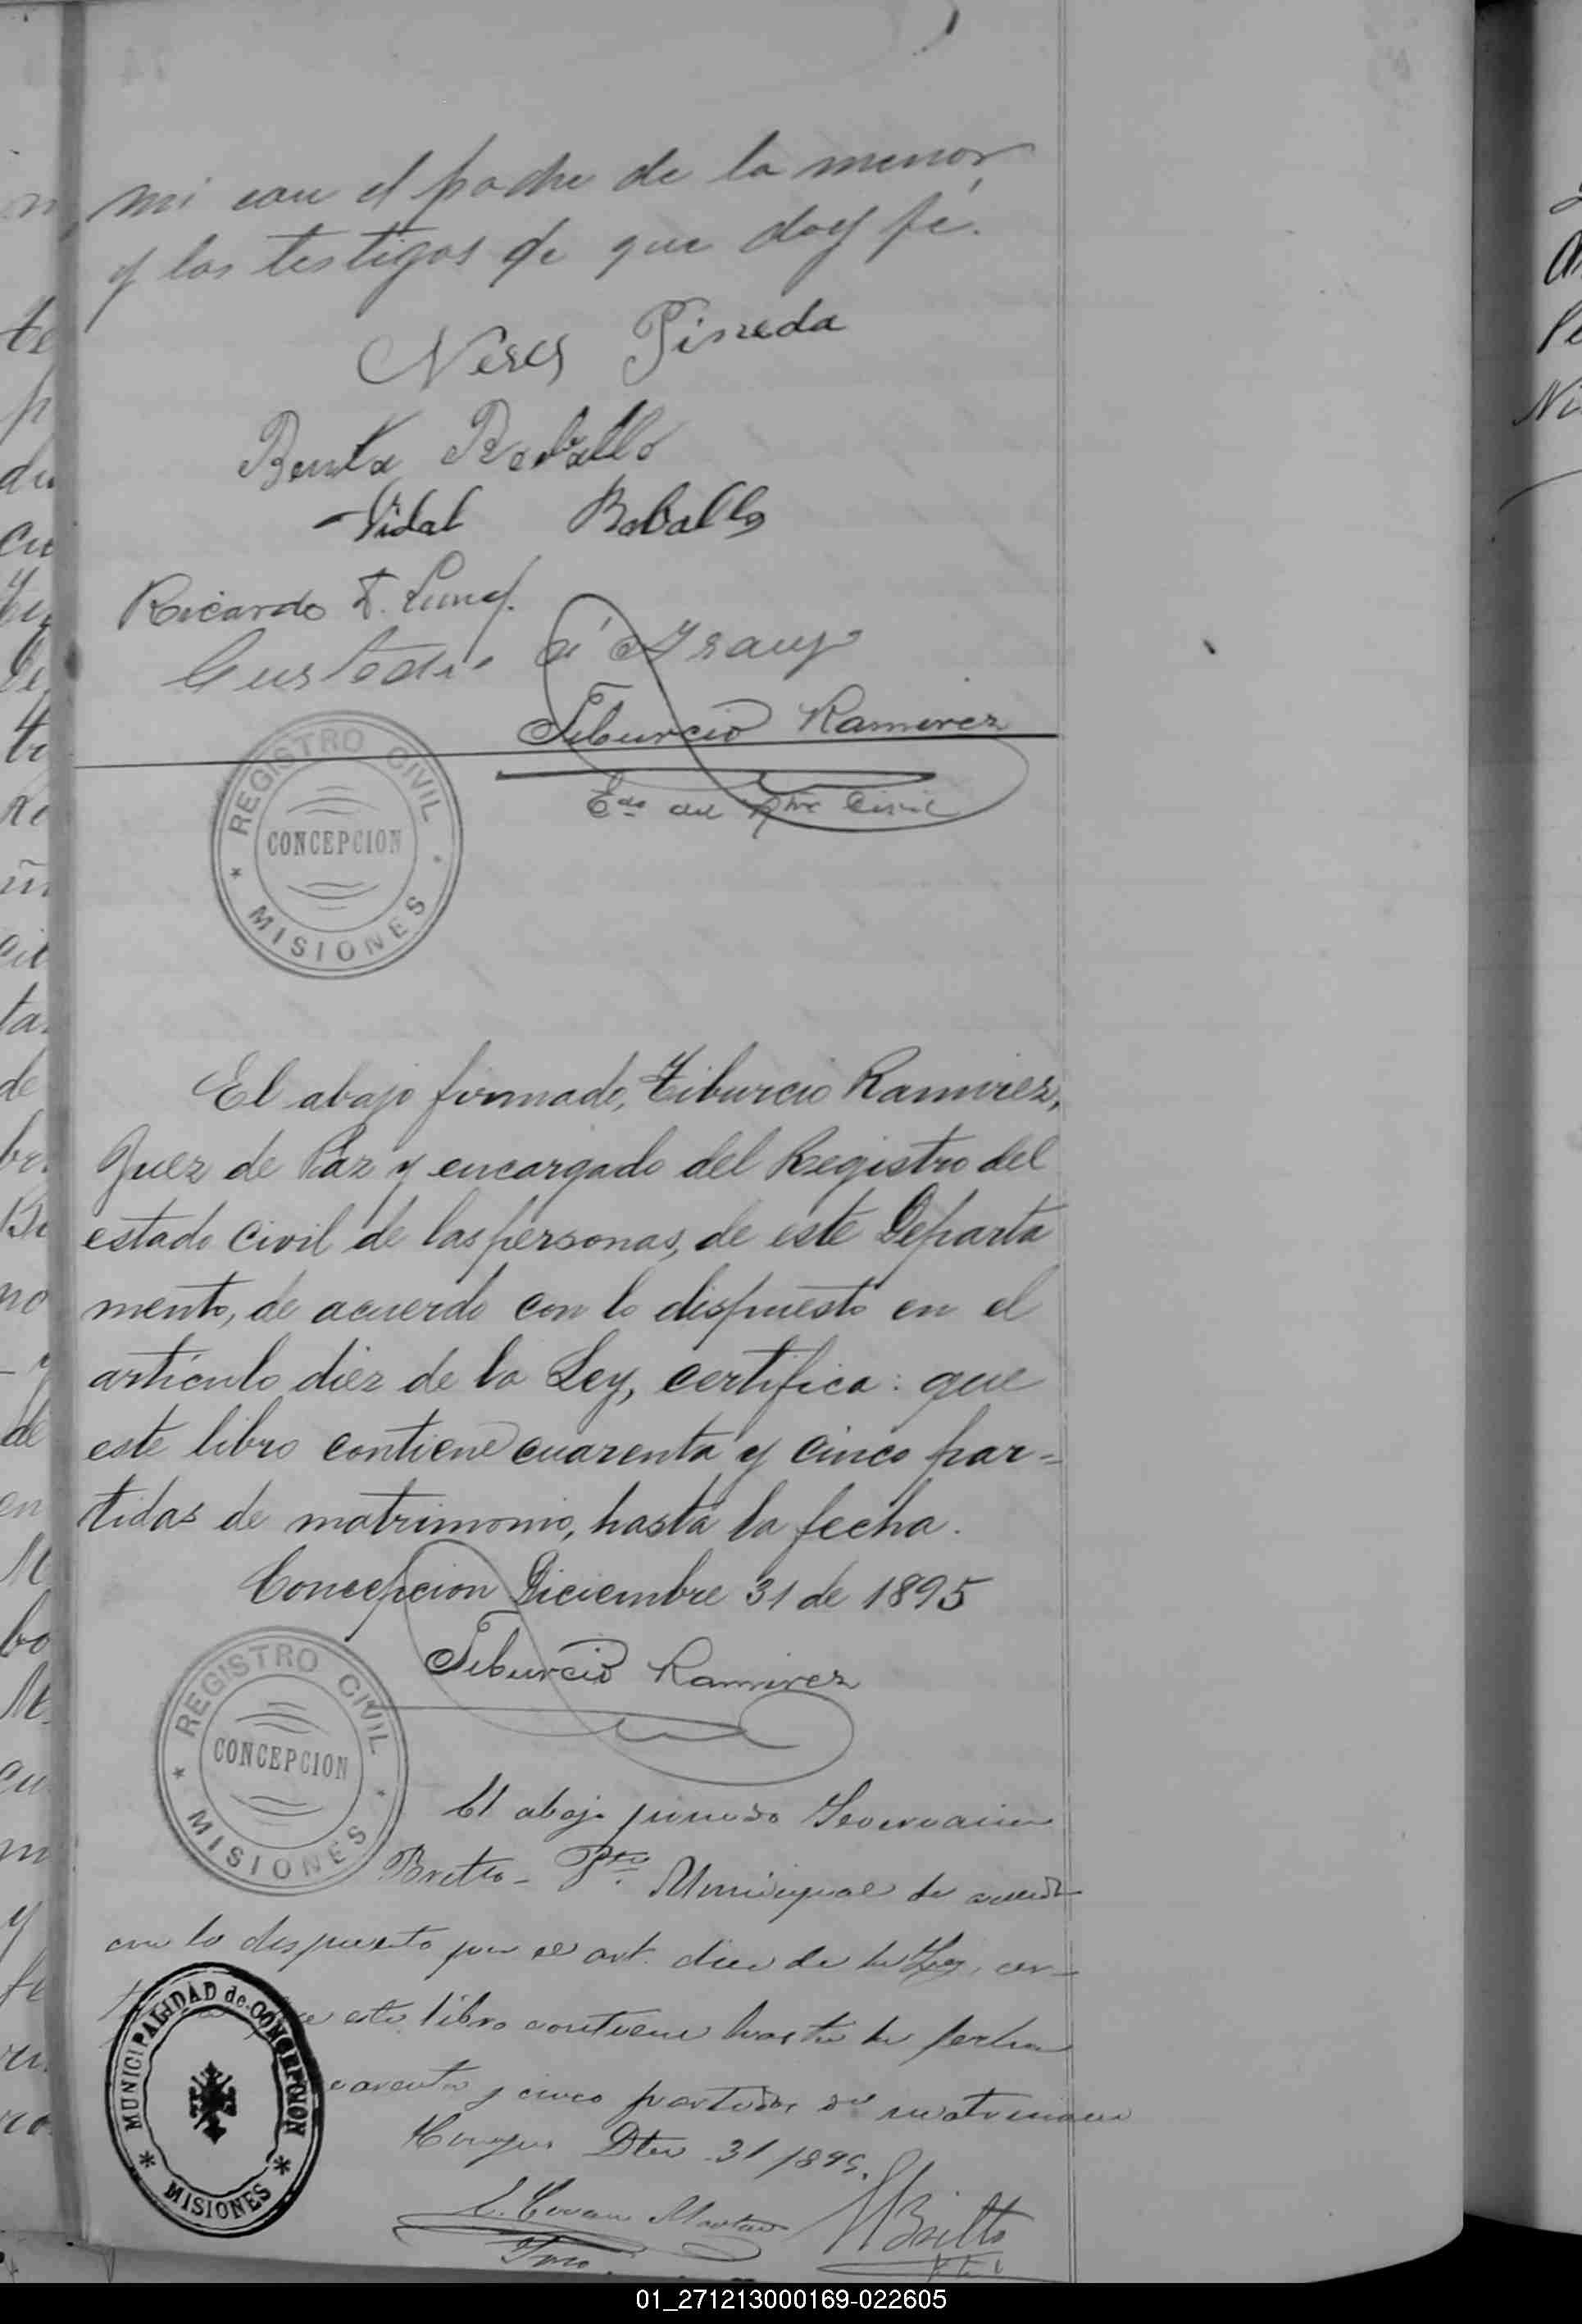 mi con el padre de la menor
y los testigos de que doy fé.
Neres Pineda
Benita Roballo
Vidal Roballo
Ricardo
Custodio
Tiburcio Ramirez
Civil
REGISTRO CIVIL
CONCEPCION
MISIONES
El abajo firmado, Tiburcio Ramirez,
Juez de Paz y encargado del Registro del
estado civil de las personas, de este Departa
mento, de acuerdo con lo dispuesto en el
artículo diez de la Ley, certifica: que
este libro contiene cuarenta y cinco par=
tidas de matrimonio, hasta la fecha.
Concepcion Diciembre 31 de 1895
Tiburcio Ramirez
REGISTRO CIVIL
CONCEPCION
MISIONES
El abajo firmado
Britto - Pte. Municipal de
con lo dispuesto por el art. diez de la Ley, cer-
este libro contiene hasta la fecha
cuarenta y cinco partidas de matrimonio
31 1895.
Britto
MUNICIPALIDAD de CONCEPCION
MISIONES
01_271213000169-022605